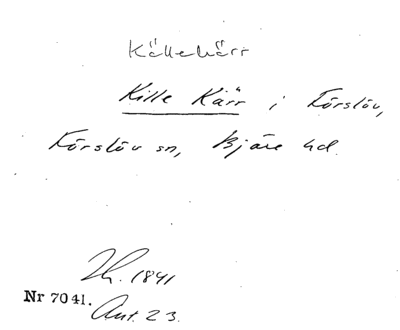 Källekärr
Kille Kärr i Förslöv,
Förslöv sn, Bjäre hd.
Th. 1841
Nr 7041.
Ant. 23.